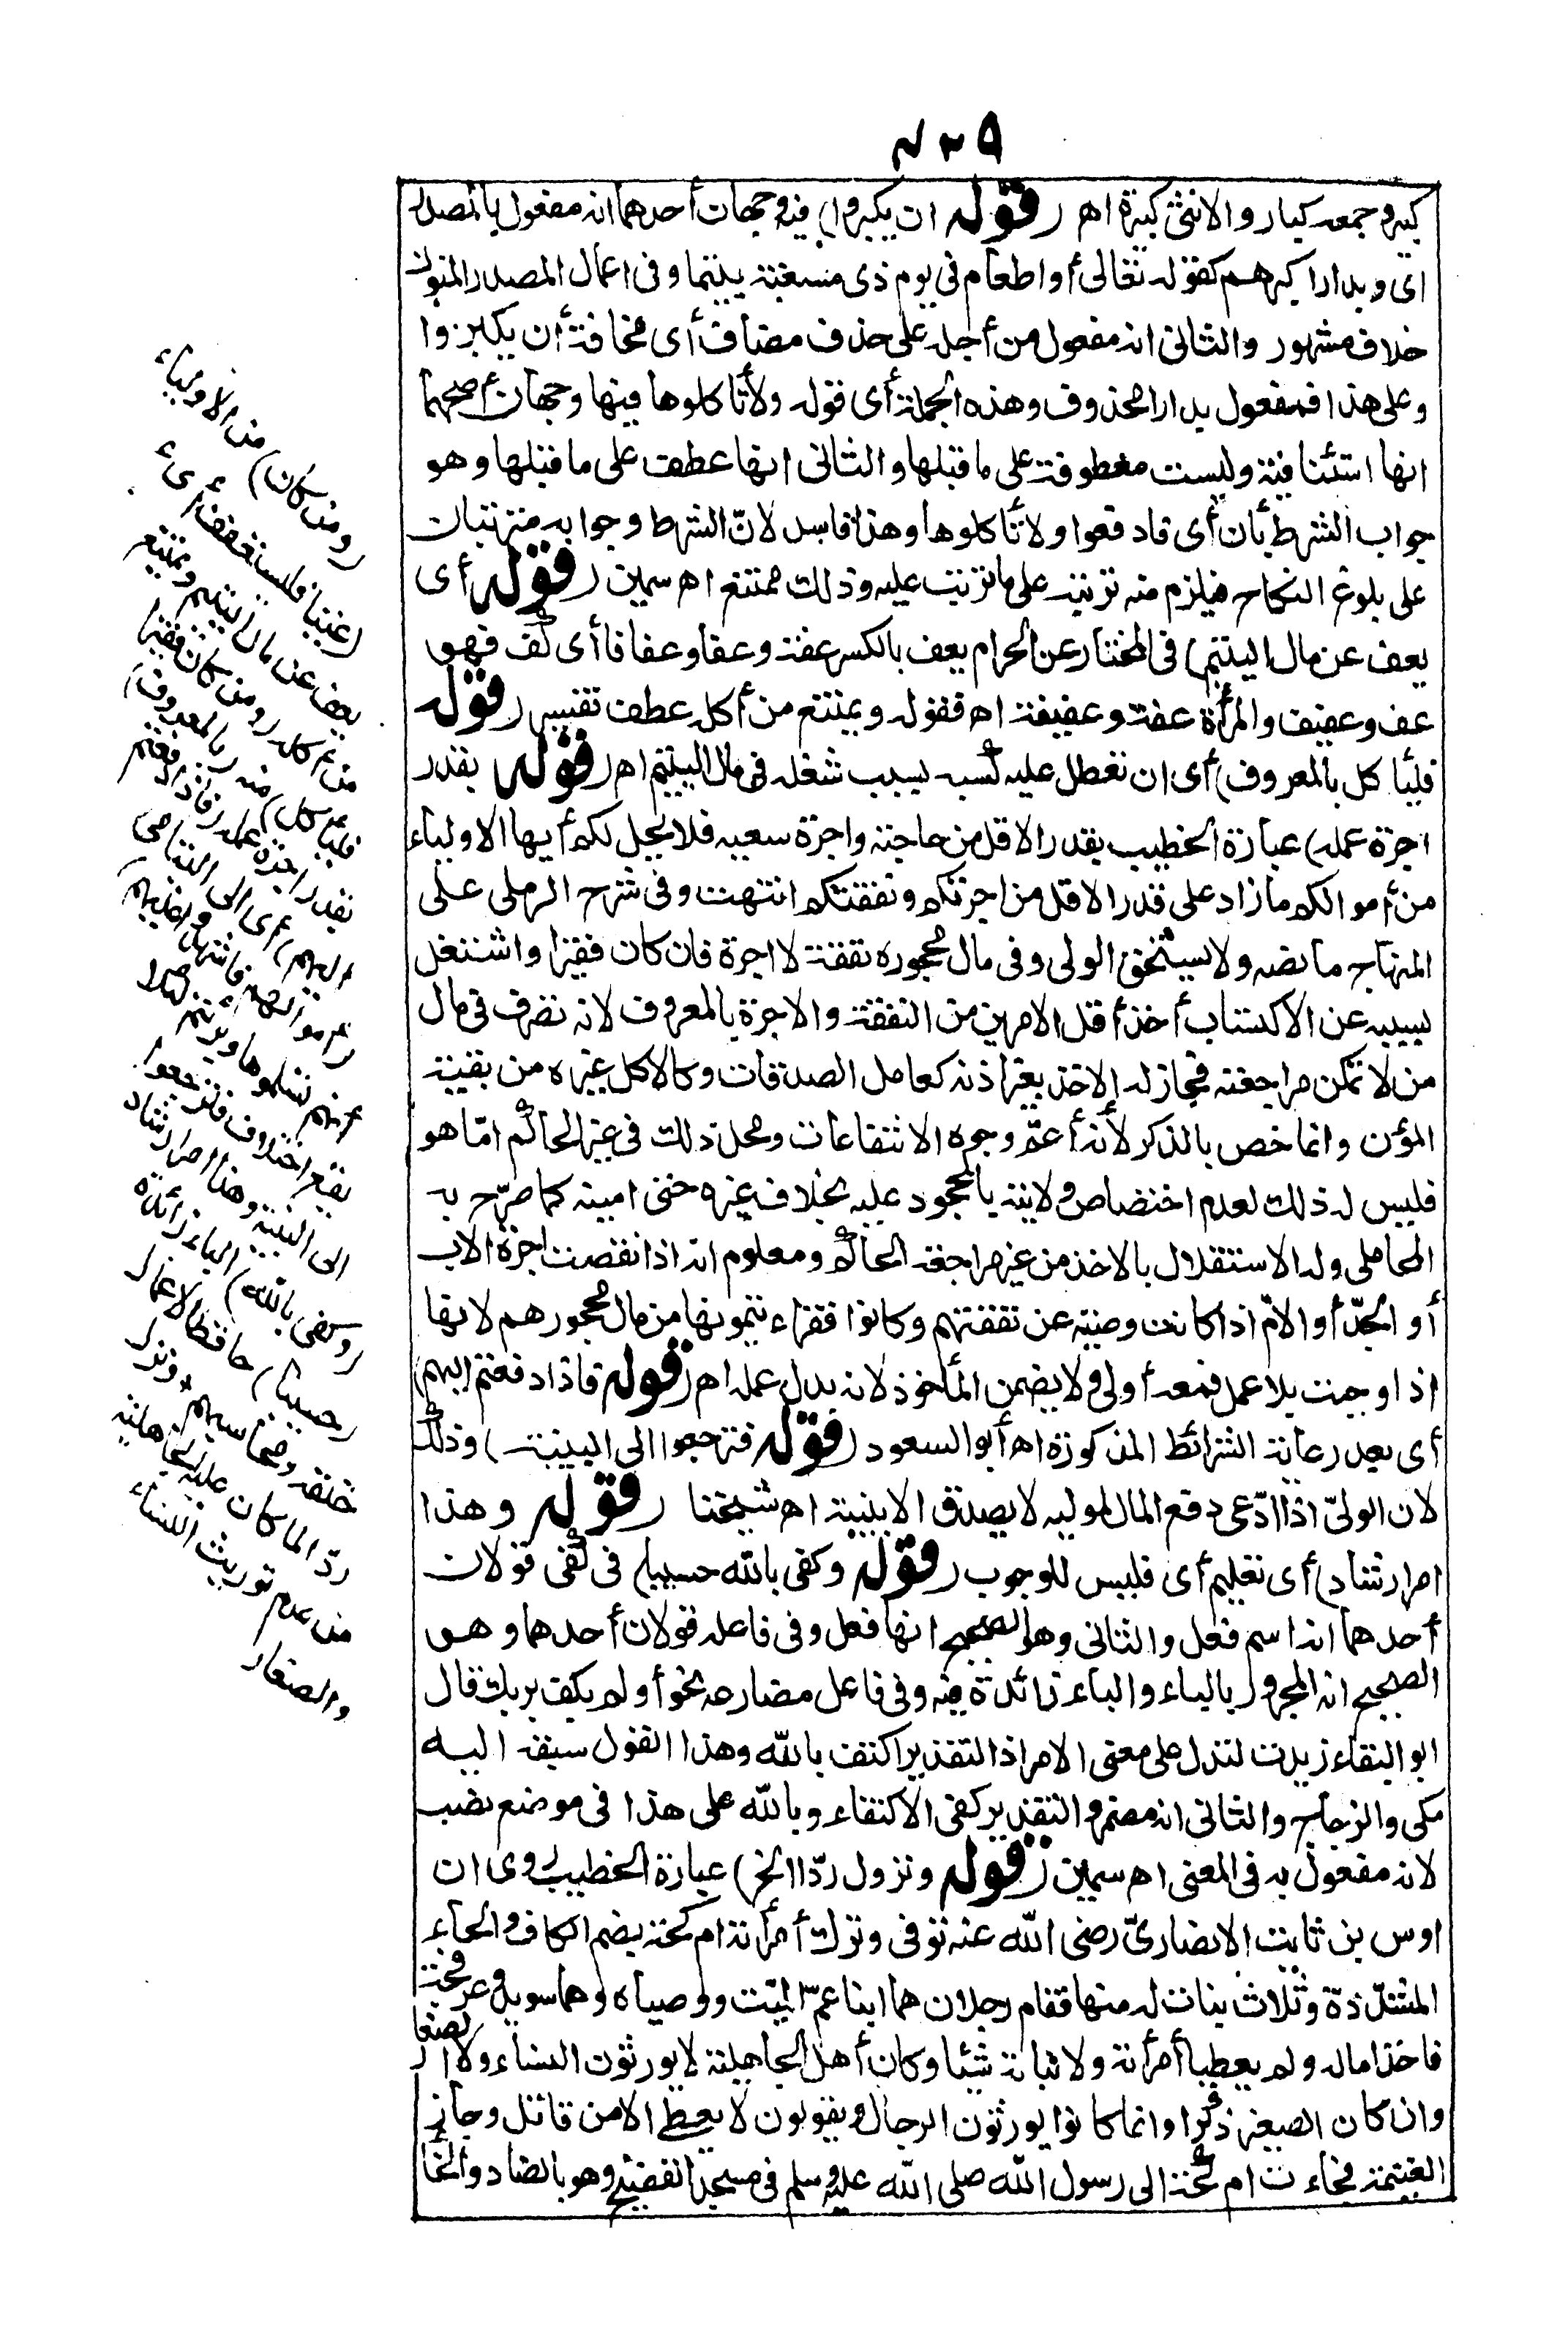 ٤٢٩
كبير وجمعه كبار والانثى كبيرة اهـ (قوله ان يكبروا) فيه وجهان أحدهما انه مفعول بالمصدر
اى وبدارا كبرهم كقوله تعالى أو اطعام فى يوم ذى مسغبة يتيما وفى اعمال المصدر المنون
خلاف مشهور والثانى انه مفعول من أجله على حذف مضاف أى مخافة أن يكبروا
وعلى هذا فمفعول بدارا محذوف وهذه الجملة أى قوله ولا تأكلوها فيها وجهان أصحهما
انها استئنافية وليست معطوفة على ما قبلها والثانى انها عطف على ما قبلها وهو
جواب الشرط بأن أى فادفعوا ولا تأكلوها وهذا فاسد لانّ الشرط وجوابه مترتبان
على بلوغ النكاح فيلزم منه ترتيبه على ما ترتبت عليه وذلك ممتنع اهـ سمين (قوله أى
يعف عن مال اليتيم) فى المختار عن الحرام يعف بالكسر عفة وعفا وعفافا أى كف فهو
عف وعفيف والمرأة عفة وعفيفة اهـ فقوله ويمتنع من أكله عطف تفسير (قوله
فليأكل بالمعروف) أى ان تعطل عليه كسبه بسبب شغله فى مال اليتيم اهـ (قوله بقدر
اجرة عمله) عبارة الخطيب بقدر الاقل من حاجته واجرة سعيه فلا يحل لكم أيها الاولياء
من أموالكم ما زاد على قدر الاقل من اجرتكم ونفقتكم انتهت وفى شرح الرملى على
المنهاج ما نصه ولا يستحق الولى وفى مال محجوره نفقة لا اجرة فان كان فقيرا واشتغل
بسببه عن الاكتساب أخذ أقل الامرين من النفقة والاجرة بالمعروف لانه تصرف فى مال
من لا تمكن مراجعته فجاز له الاخذ بغير اذنه كعامل الصدقات وكالاكل غيره من بقية
المؤن وانما خص بالذكر لأنه أعمّ وجوه الانتفاعات ومحل ذلك فى غير الحاكم امّا هو
فليس له ذلك لعدم اختصاص ولايته بالمحجود عليه بخلاف غيره حتى امينه كما صرّح به
المحاملى وله الاستقلال بالاخذ من غير مراجعة الحاكم ومعلوم انه اذا نقصت اجرة الاب
أو الجدّ أو الامّ اذا كانت وصية عن نفقتهم وكانوا فقراء يتمونها من مال محجورهم لانها
اذا وجبت بلا عمل فمعه أولى ولا يضمن المأخوذ لانه بدل عمله اهـ (قوله فاذا دفعتم اليهم)
أى بعد رعاية الشرائط المذكورة اهـ أبو السعود (قوله فترجعوا الى البينة) وذلك
لان الولىّ اذا ادّعى دفع المال لموليه لا يصدق الا ببينة اهـ شيخنا (قوله وهذا
امر ارشاد) أى تعليم أى فليس للوجوب (قوله وكفى بالله حسيبا) فى كفى قولان
أحدهما انه اسم فعل والثانى وهو الصحيح انها فعل وفى فاعله قولان أحدهما وهو
الصحيح انه المجرور بالباء والباء زائدة فيه وفى فاعل مضارعه نحو أولم يكف بربك قال
ابو البقاء زيدت لتدل على معنى الامر اذ التقدير اكتف بالله وهذا القول سبقه اليه
مكى والزجاج والثانى انه مضمر والتقدير كفى الاكتفاء وبالله على هذا فى موضع نصب
لانه مفعول به فى المعنى اهـ سمين (قوله ونزول ردّا الخ) عبارة الخطيب روى ان
اوس بن ثابت الانصارىّ رضى الله عنه توفى وترك أمرأته ام كحة بضم الكاف والحاء
المشدّدة وثلاث بنات له منها فقام رجلان هما ابنا عمّ الميّت ووصياه وهما سويد وعرفجة
فاخذا ماله ولم يعطيا أمرأته ولا بناته شيئا وكان أهل الجاهلية لا يورثون النساء ولا الصغار
وان كان الصغير ذكرا وانما كانوا يورثون الرجال ويقولون لا يعطى الامن قاتل وحاز
الغنيمة فجاءت ام كحة الى رسول الله صلى الله عليه وسلم فى مسجد الفضيخ وهو بالضاد والخا
(ومن كان) من الاولياء
(غنيا فليستعفف) أى
يعف عن مال اليتيم ويمتنع
من أكله (ومن كان فقيرا
فليأكل) منه (بالمعروف)
بقدر اجرة عمله (فاذا دفعتم
اليهم) أى الى اليتامى
(أموالهم فاشهدوا عليهم)
أنهم تسلموها وبرئتم لئلا
يقع اختلاف فترجعوا
الى البينة وهذا امر ارشاد
(وكفى بالله) الباء زائدة
(حسيبا) حافظا لاعمال
خلقه ومحاسبهم * ونزل
ردّا لما كان عليه الجاهلية
من عدم توريث النساء
والصغار